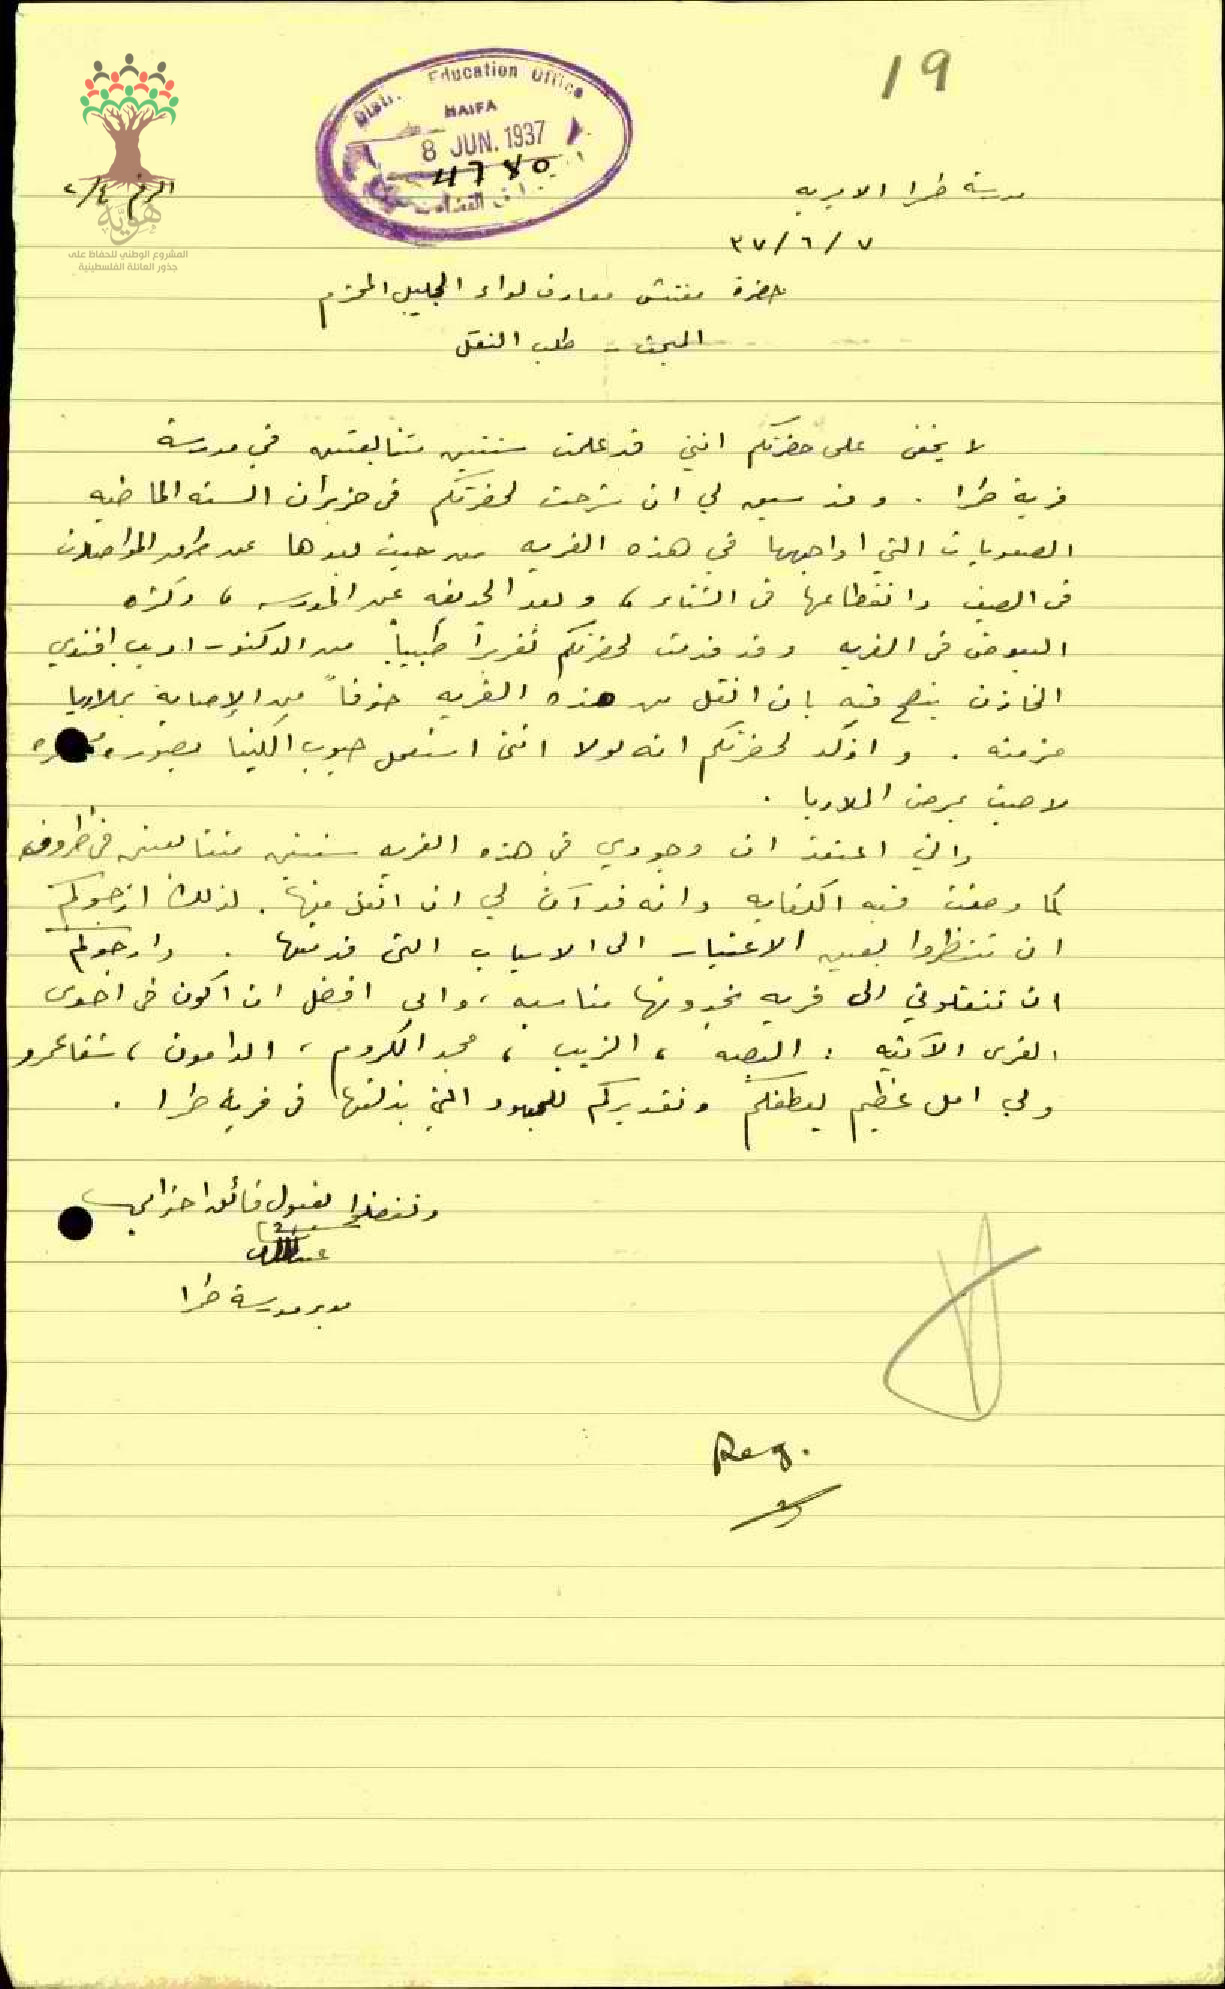 19
District Education Office
HAIFA
8 JUN. 1937
4780
هوية
المشروع الوطني للحفاظ على
جذور العائلة الفلسطينية
مدرسة طمرا الاميريه
الرقم ٤/٢
٣٧/٦/٧
حضرة مفتش معارف لواء الجليل المحترم
المبحث - طلب النقل
لا يخفى على حضرتكم انني قد علمت سنتين متتابعتين في مدرسة
قرية طمرا . وقد سبق لي ان شرحت لحضرتكم في حزيران السنه الماضيه
الصعوبات التي اواجهها في هذه القريه من حيث بعدها عن طرق المواصلات
في الصيف وانقطاعها في الشتاء ، وبعد الحديقه عن المدرسه ، وكثرة
البعوض في القريه وقد قدمت لحضرتكم تقريراً طبياً من الدكتور اديب افندي
الخازن ينصح فيه بان انقل من هذه القريه خوفاً من الإصابة بملاريا
مزمنه . واؤكد لحضرتكم انه لولا انني استعمل حبوب الكينا بصوره
لاصبت بمرض الملاريا .
واني اعتقد ان وجودي في هذه القريه سنتين متتابعتين في ظروف
كما وصفت فيه الكفايه وانه قد آن لي ان انقل منها . لذلك ارجوكم
ان تنظروا بعين الاعتبار الى الاسباب التي قدمتها . وارجوكم
ان تنقلوني الى قريه تجدونها مناسبه ، واني افضل ان اكون في احدى
القرى الآتيه : البصه ، الزيب ، مجد الكروم ، الدامون ، شفاعمرو
ولي امل عظيم بعطفكم وتقديركم للجهود التي بذلتها في قرية طمرا .
وتفضلوا بقبول فائق احترامي
مدير مدرسة طمرا
Reg.